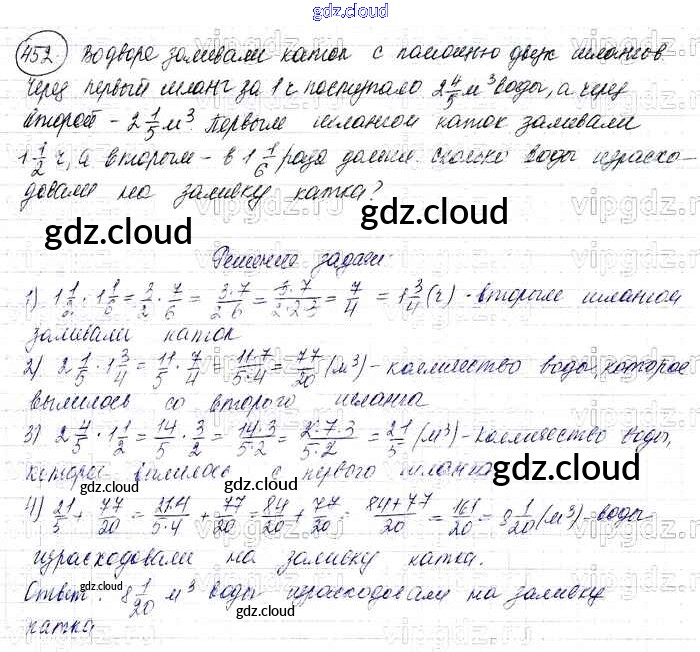 gdz.cloud
452. Во дворе заливали каток с помощью двух шлангов.
Через первый шланг за 1 ч поступало 2 4/5 м³ воды, а через
второй – 2 1/5 м³. Первым шлангом каток заливали
1 1/2 ч, а вторым – в 1 1/6 раза дольше. Сколько воды израсхо-
довали на заливку катка?
gdz.cloud gdz.cloud
Решение задачи
1) 1 1/2 · 1 1/6 = 3/2 · 7/6 = 3·7/2·6 = 3·7/2·2·3 = 7/4 = 1 3/4 (ч) - вторым шлангом
заливали каток
2) 2 1/5 · 1 3/4 = 11/5 · 7/4 = 11·7/5·4 = 77/20 (м³) - количество воды, которое
вылилось со второго шланга
3) 2 4/5 · 1 1/2 = 14/5 · 3/2 = 14·3/5·2 = 2·7·3/5·2 = 21/5 (м³) - количество воды,
которое вылилось с первого шланга
gdz.cloud
gdz.cloud gdz.cloud
4) 21/5 + 77/20 = 21·4/5·4 + 77/20 = 84/20 + 77/20 = 84+77/20 = 161/20 = 8 1/20 (м³) - воды
израсходовали на заливку катка.
gdz.cloud
Ответ: 8 1/20 м³ воды израсходовали на заливку
катка
gdz.cloud